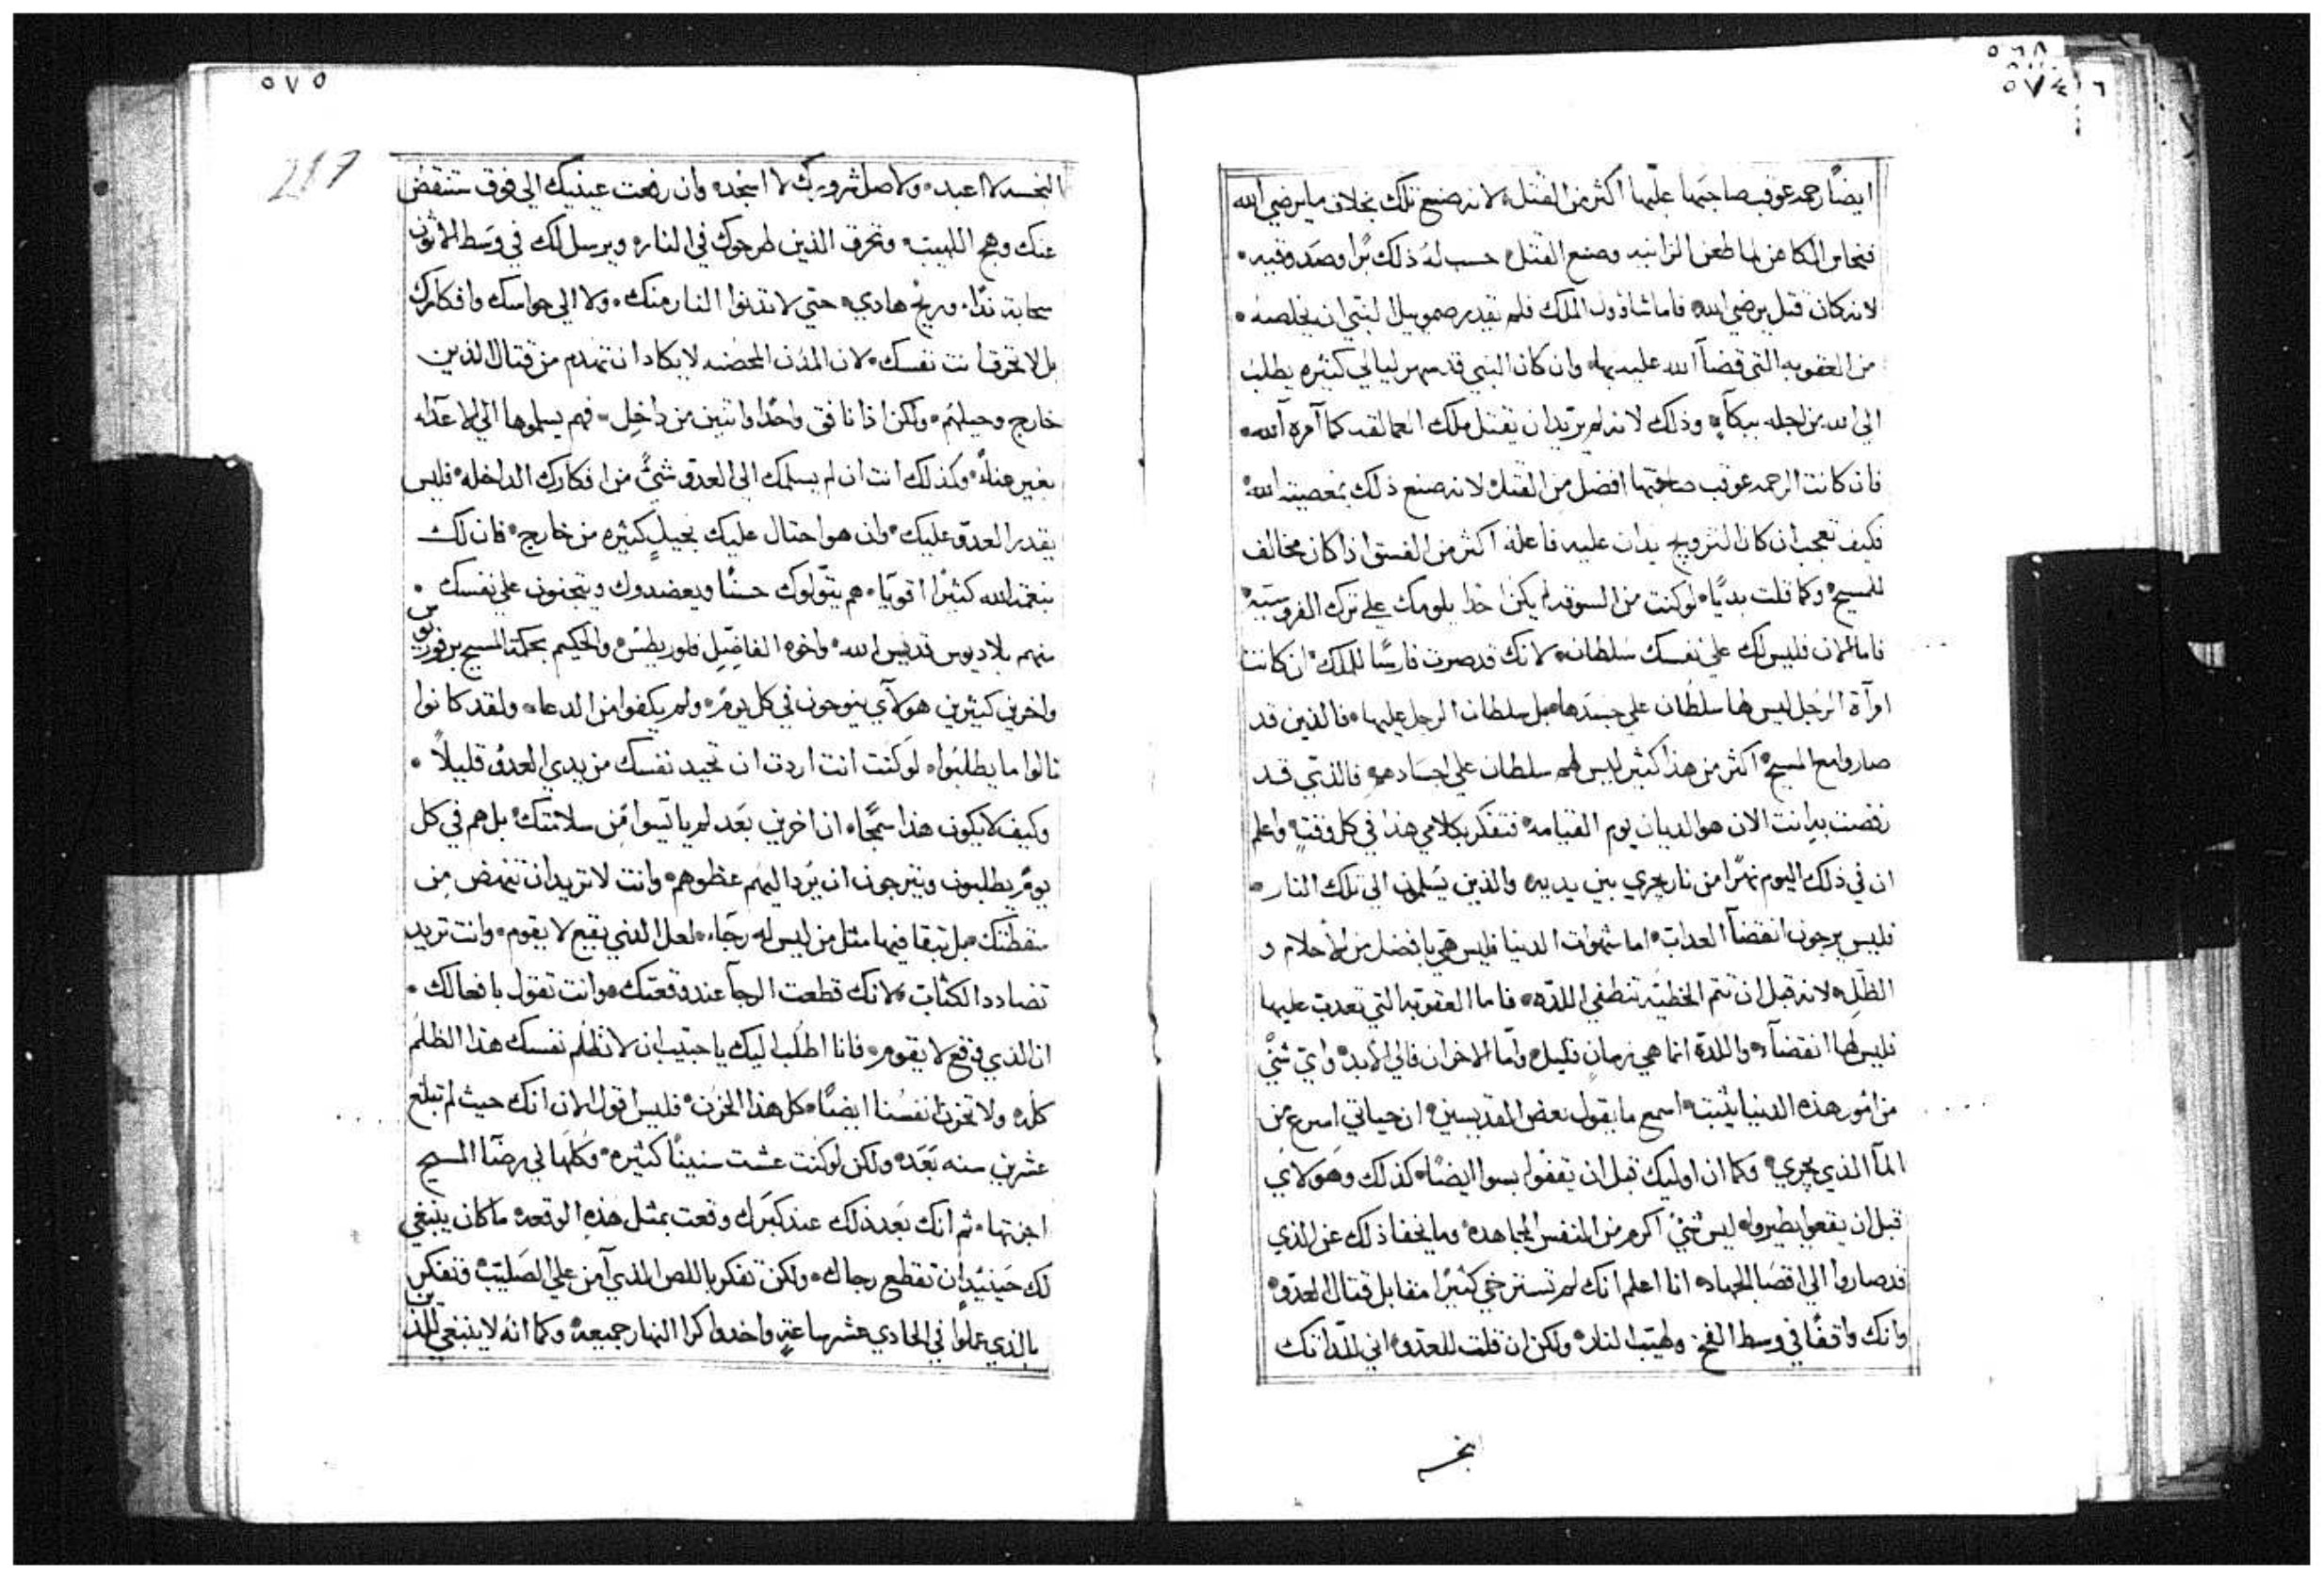 ٥٦٨
٥٧٤
ايضًا رحمه عوقب صاحبها عليها اكثر من القتل لانه صنع تلك بخلاف ما يرضي الله
فنحاس الكاهن لما طعن الزانيه وصنع القتل حسب له ذلك برًا وصدوقيه
لانه كان قبل يرضي الله فاما شاوول الملك فلم يقدر صموييل النبي ان يخلصه
من العقوبه التي قضا الله عليه بها وان كان النبي قد سهر ليالي كثيره يطلب
الي الله من اجله ببكاء وذلك لانه لم يريد ان يقتل ملك العمالقه كما امره الله
فان كانت الرحمه عوقب صاحبها افضل من القتل لانه صنع ذلك بمعصيته الله
فكيف تعجب ان كان التزويج يدان عليه فاعله اكثر من الفسق اذا كان مخالف
للمسيح وكما قلت بديًا لو كنت من السوقه لم يكن احدا يلومك علي ترك الفروسيه
فاما الان فليس لك علي نفسك سلطان لانك قد صرت فارسًا للملك ان كانت
امرآة الرجل ليس لها سلطان علي جسدها بل سلطان الرجل عليها فالذين قد
صاروا مع المسيح اكثر من هذا كثير ليس لهم سلطان علي اجسادهم فالذي قد
رفضت به انت الان هو الديان يوم القيامه فتفكر بكلامي هذا في كل وقت واعلم
ان في ذلك اليوم نهرًا من نار يجري بين يديه والذين يسلمون الي تلك النار
فليس يرجون انقضآ العداب اما شهوات الدنيا فليس هي بافضل من الاحلام و
الظل لانه قبل ان تتم الخطيه تنطفي اللده فاما العقوبه التي تعدبت عليها
فليس لها انقضآ واللدة انما هي زمان قليل وامّا الاحزان فالي الابد واي شيً
من امور هذه الدنيا يثبت اسمع ما يقول بعض القديسين ان حياتي اسرع من
المآ الذي يجري وكما ان اوليك قبل ان يقفوا يبسوا ايضًا كذلك وهولاي
قبل ان يقعوا يطيروا ليس شيً اكرم من النفس المجاهده وما يخفا ذلك عن الذي
قد صاروا الي اقصا الجهاد انا اعلم انك لم تسترخي كثيرًا مقابل قتال العدو
وانك واقفًا في وسط الفخ ولهيب النار ولكن ان قلت للعدو اني للداتك
النجسه
٥٧٥
217
النجسه لا اعبد ولاصل شرورك لا اسجد وان رفعت عينيك الي فوق ستنقض
عنك وهج اللهيب وتحرق الذين طرحوك في النار ويرسل لك في وسط الاتون
سحابة ندا وريح هادي حتي لا تدنوا النار منك ولا الي حواسك وافكارك
بل لا تحرق انت نفسك لان المدن المحصنه لا يكاد ان تهدم من قتال الذين
خارج وحيلهم ولكن اذا نافق واحدا واثنين من داخل فهم يسلموها الي الاعدآ
بغير عنآ وكذلك انت ان لم يسلمك الي العدو شيً من افكارك الداخله فليس
يقدر العدو عليك وان هو احتال عليك بحيلٍ كثيره من خارج فان لك
بنعمة الله كثيرًا اقويآ هم يتولوك حسنًا ويعضدوك ويتحننون علي نفسك
منهم بلاديوس قديس الله واخوه الفاضل فلوريطس والحكيم بحكمة المسيح برفوريوس
واخرين كثيرين هولآي ينوحون في كل يومٍ ولم يكفوا من الدعا ولقد كانوا
نالوا ما يطلبوا لو كنت انت اردت ان تحيد نفسك من يدي العدو قليلاً
وكيف لا يكون هذا سمجًا ان اخرين بعد لم ياتيسوا من سلامتك بل هم في كل
يومٍ يطلبون ويترجون ان يرد اليهم عظوهم وانت لا تريد ان تنهض من
سقطتك بل تبقا فيها مثل من ليس له رجآء لعل الذي يقع لا يقوم وانت تريد
تضادد الكتاب لانك قطعت الرجآ عند وقعتك وانت تقول بافعالك
ان الذي وقع لا يقوم فانا اطلب اليك يا حبيب ان لا تظلم نفسك هذا الظلم
كله ولا تحزن انفسنا ايضًا كل هذا الحزن فليس اقول الان انك حيث لم تبلغ
عشرين سنه بعد ولكن لو كنت عشت سنينًا كثيره وكلها في رضآ المسيح
اجزتها ثم انك بعد ذلك عند كبرك وقعت بمثل هذه الوقعه ما كان ينبغي
لك حينيدٍ ان تقطع رجاك ولكن تفكر باللص الذي آمن علي الصليب وتفكر
بالذين عملوا في الحادي عشر ساعةٍ واخدوا كرا النهار جميعه وكما انه لا ينبغي للذين